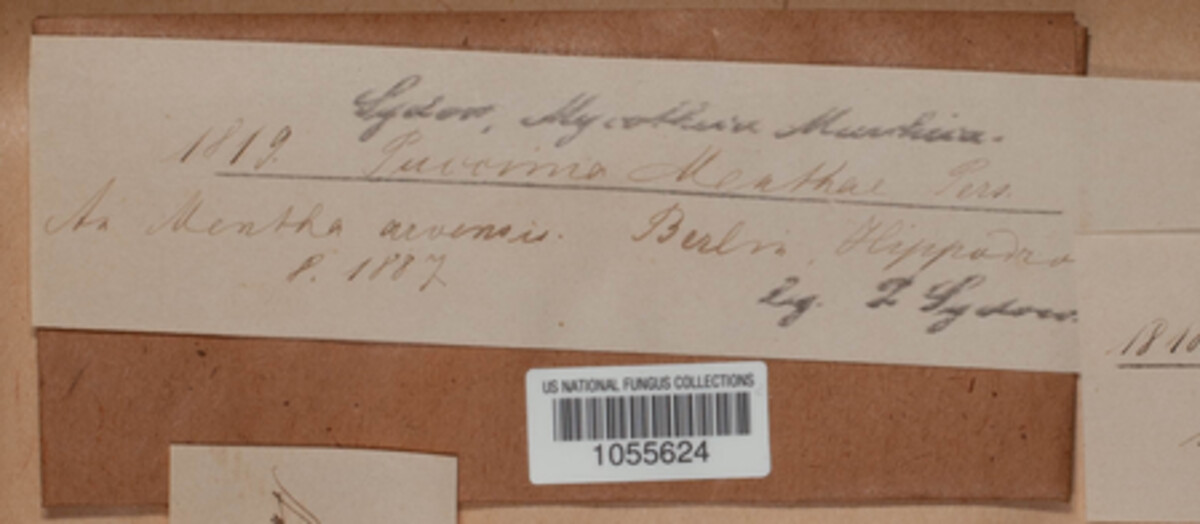 Sydow, Mycotheca Marchica.
1819. Puccinia Menthae Pers.
An Mentha arvensis. Berlin, Hippodro
8. 1887
leg. P Sydow.
US NATIONAL FUNGUS COLLECTIONS
1055624
181